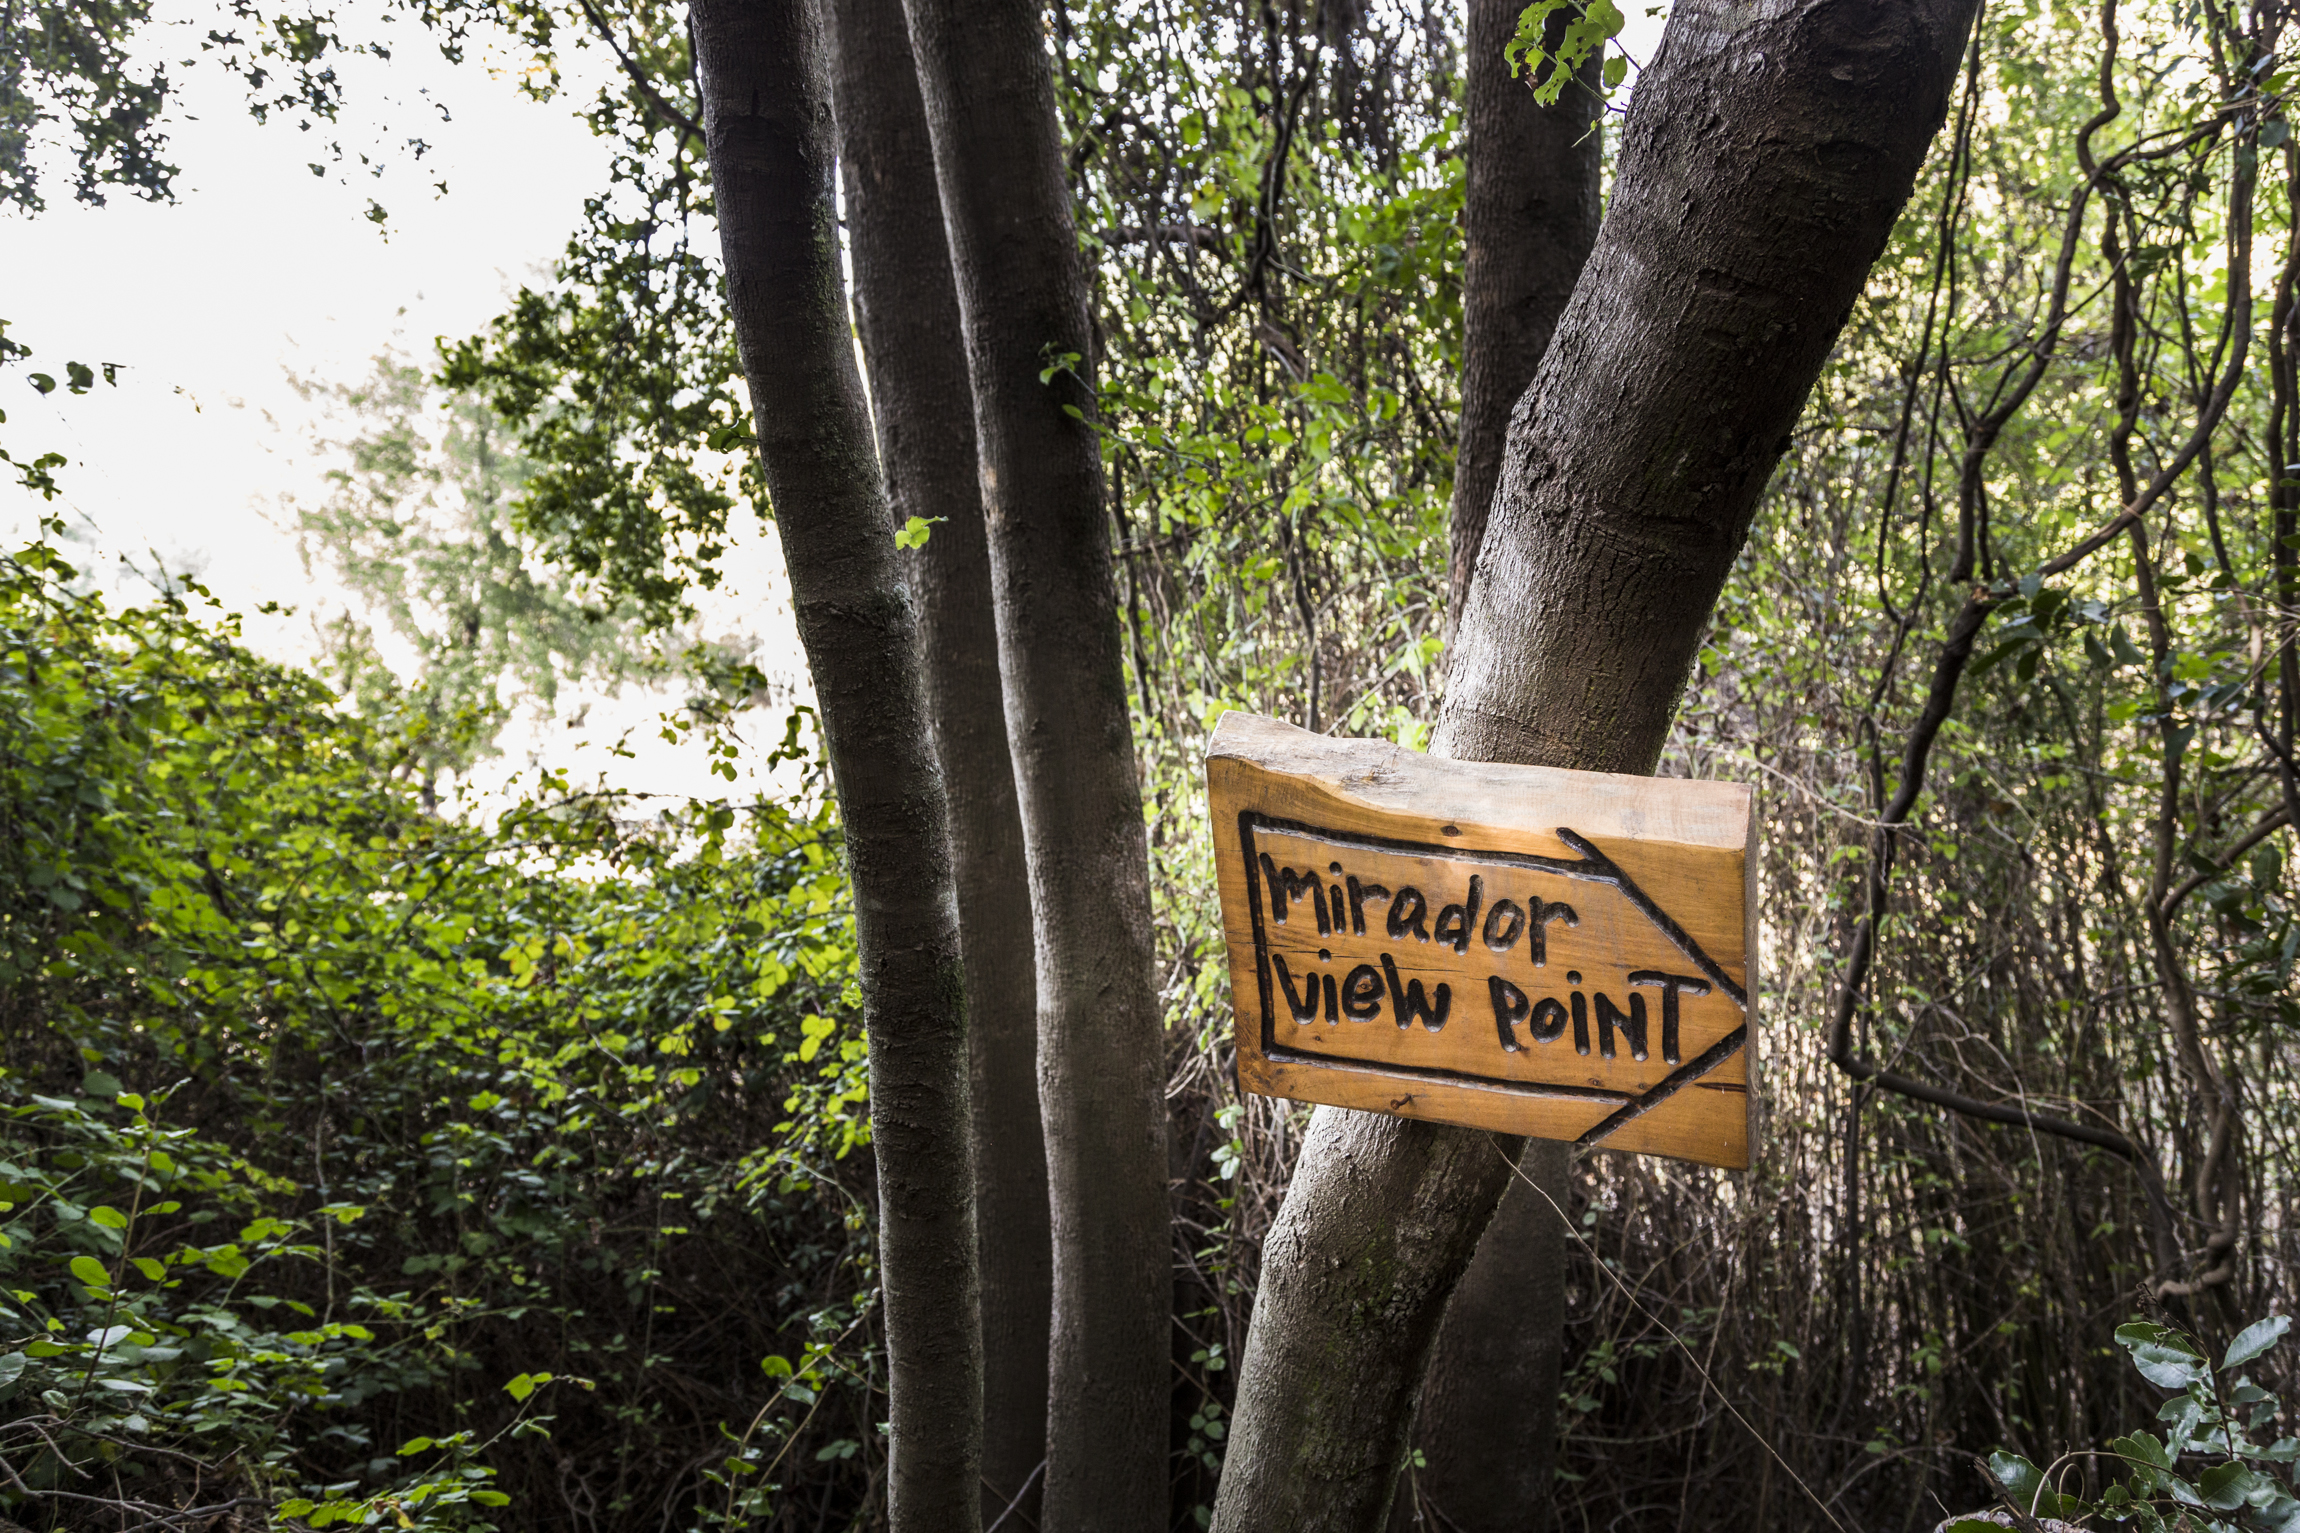 mirador
view PoiNT